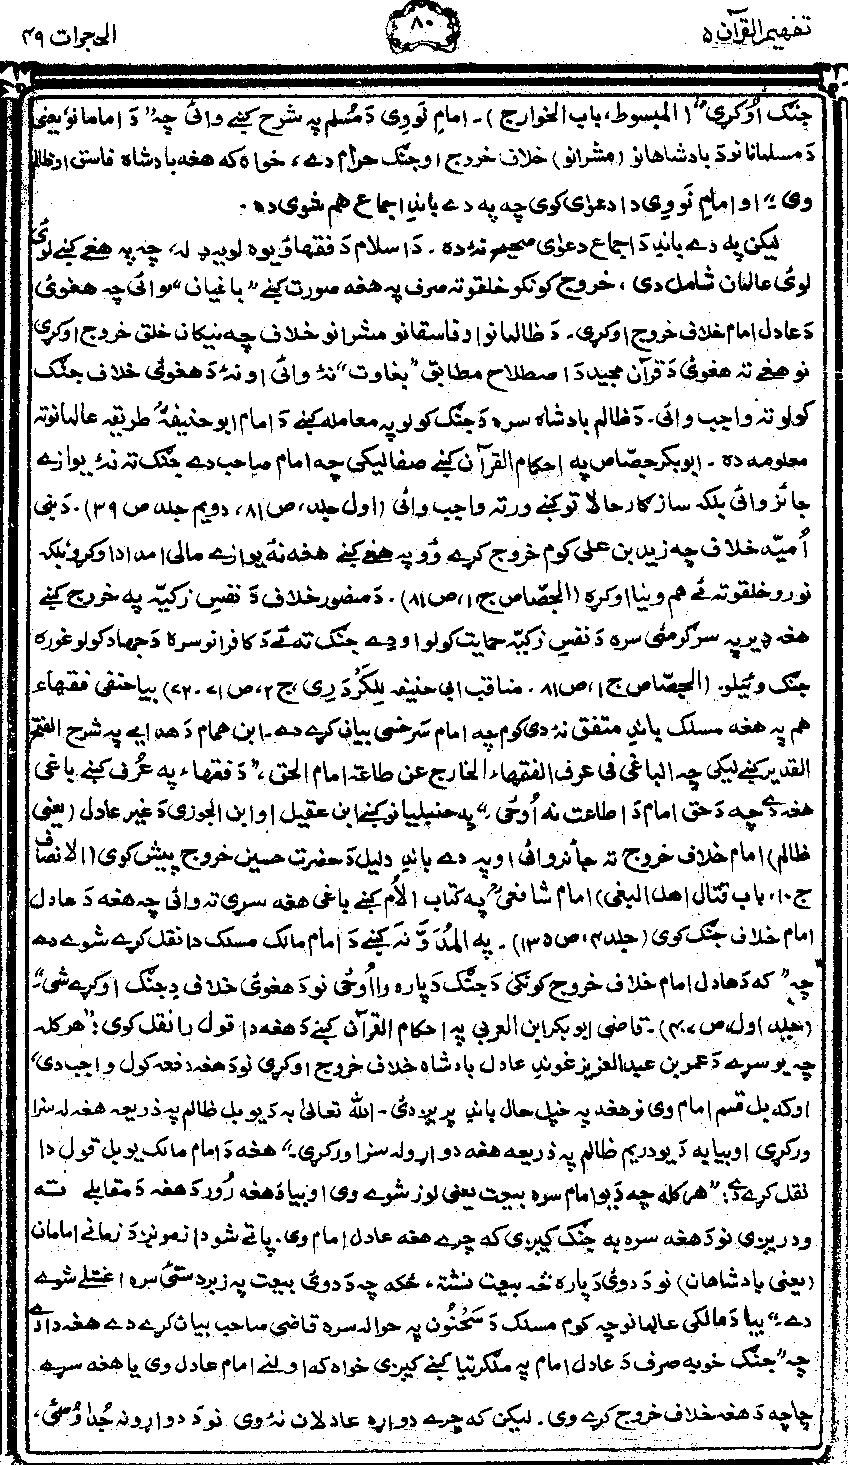 تفهیم القرآن ۵
۸۰
الحجرات ۴۹
جنګ اوکړی" (المبسوط، باب الخوارج)۔ امام نَووِی دَ مُسلم په شرح کښے وائی چه" دَ امامانو یعنی
دَ مسلمانانو دَ بادشاهانو (مشرانو) خلاف خروج او جنګ حرام دے، خواه که هغه بادشاه فاسق او ظالم
وی۔" او امام نَووِی دا دعوٰی کوی چه په دے باندِ اجماع هم شوی ده۔
لیکن په دے باندِ دَ اجماع دعوٰی صحیح نهٔ ده۔ دَ اسلام دَ فقهاؤ یوه لویه ډله، چه په هغے کښے لوئی
لوئی عالمان شامل دی، خروج کونکو خلقو ته صرف په هغه صورت کښے "باغیان" وائی چه هغوئی
دَ عادل امام خلاف خروج اوکړی۔ دَ ظالمانو او فاسقانو مشرانو خلاف چه نیکان خلق خروج اوکړی
نو هغے ته هغوئی دَ قرآن مجید دَ اصطلاح مطابق "بغاوت" نهٔ وائی او نهٔ دَ هغوئی خلاف جنګ
کولو ته واجب وائی۔ دَ ظالم بادشاه سره دَ جنګ کولو په معامله کښے دَ امام ابو حنیفهؒ طریقه عالمانو ته
معلومه ده۔ ابوبکر جصّاص په احکام القرآن کښے صفا لیکی چه امام صاحب دے جنګ ته نهٔ یوازے
جائز وائی بلکه سازګار حالاتو کښے ورته واجب وائی (اول جلد، ص ۸۱، دویم جلد ص ۳۹)۔ دَ بنی
اُمیّه خلاف چه زید بن علی کوم خروج کرے ؤو په هغے کښے هغه نهٔ یوازے مالی امداد اوکړو بلکه
نورو خلقو ته ئے هم وینا اوکړه (الجصّاص ج ۱، ص ۸۱)۔ دَ منصور خلاف دَ نفسِ زکیّه په خروج کښے
هغه ډیر په سرګرمئی سره دَ نفسِ زکیّه حمایت کولو او دے جنګ ته ئے دَ کافرانو سره دَ جهاد کولو غوره
جنګ وئیلو۔ (الجصّاص ج ۱، ص ۸۱۔ مناقب ابی حنیفه لِلکَردَرِی، ج ۲، ص ۷۱-۷۲) بیا حنفی فقهاء
هم په هغه مسلک باندِ متفق نهٔ دی کوم چه امام سَرخسی بیان کړے دے۔ ابن همام دَ هدایے په شرح الفتح
القدیر کښے لیکی چه الباغی فی عرف الفقهاء الخارج عن طاعة امام الحق،" دَ فقهاء په عُرف کښے باغی
هغه دے چه دَ حق امام دَ اطاعت نه اُوځی۔" په حنبلیانو کښے ابن عقیل او ابن الجوزی دَ غیر عادل (یعنی
ظالم) امام خلاف خروج ته جائز وائی او په دے باندِ دلیل دَ حضرت حسین خروج پیش کوی (الانصاف
ج ۱۰، باب قتال اهل البغی) امام شافعیؒ په کتاب الاُم کښے باغی هغه سړی ته وائی چه هغه دَ عادل
امام خلاف جنګ کوی (جلد ۴، ص ۱۳۵)۔ په المُدَوَّنه کښے دَ امام مالک مسلک دا نقل کرے شوے دے
چه" که دَ عادل امام خلاف خروج کونکی دَ جنګ دَ پاره را اُوځی نو دَ هغوئی خلاف دِ جنګ اوکرے شی۔"
(جلد اول، ص ۴۰۷)۔ قاضی ابوبکر ابن العربی په احکام القرآن کښے دَ هغه دا قول را نقل کوی:" هر کله
چه یو سرے دَ عمر بن عبدالعزیز غوندِ عادل بادشاه خلاف خروج اوکړی نو دَ هغه دفعه کول واجب دی"
او که بل قسم امام وی نو هغه په خپل حال باندِ پریږدئ۔ الله تعالیٰ به دَ یو بل ظالم په ذریعه هغه له سزا
ورکړی او بیا به دَ یو دریم ظالم په ذریعه هغه دواړو له سزا ورکړی۔" هغه دَ امام مالک یو بل قول دا
نقل کرے دے:" هر کله چه دَ یو امام سره بیعت یعنی لوز شوے وی او بیا دَ هغه رُور دَ هغه دَ مقابلے ته
ودریږی نو دَ هغه سره به جنګ کیږی که چرے هغه عادل امام وی۔ پاتے شو دا زمونږ دَ زمانے امامان
(یعنی بادشاهان) نو دَ دوئ دَ پاره څه بیعت نشته، ځکه چه دَ دوئ بیعت په زبردستئ سره اغستلے شوے
دے۔" بیا دَ مالکی عالمانو چه کوم مسلک دَ سَحنُون په حواله سره قاضی صاحب بیان کرے دے هغه دا دے
چه" جنګ خو به صرف دَ عادل امام په ملګرتیا کښے کیږی خواه که اولنے امام عادل وی یا هغه سرے
چا چه دَ هغه خلاف خروج کرے وی۔ لیکن که چرے دواړه عادلان نهٔ وی نو دَ دواړو نه جُدا اوسئ،